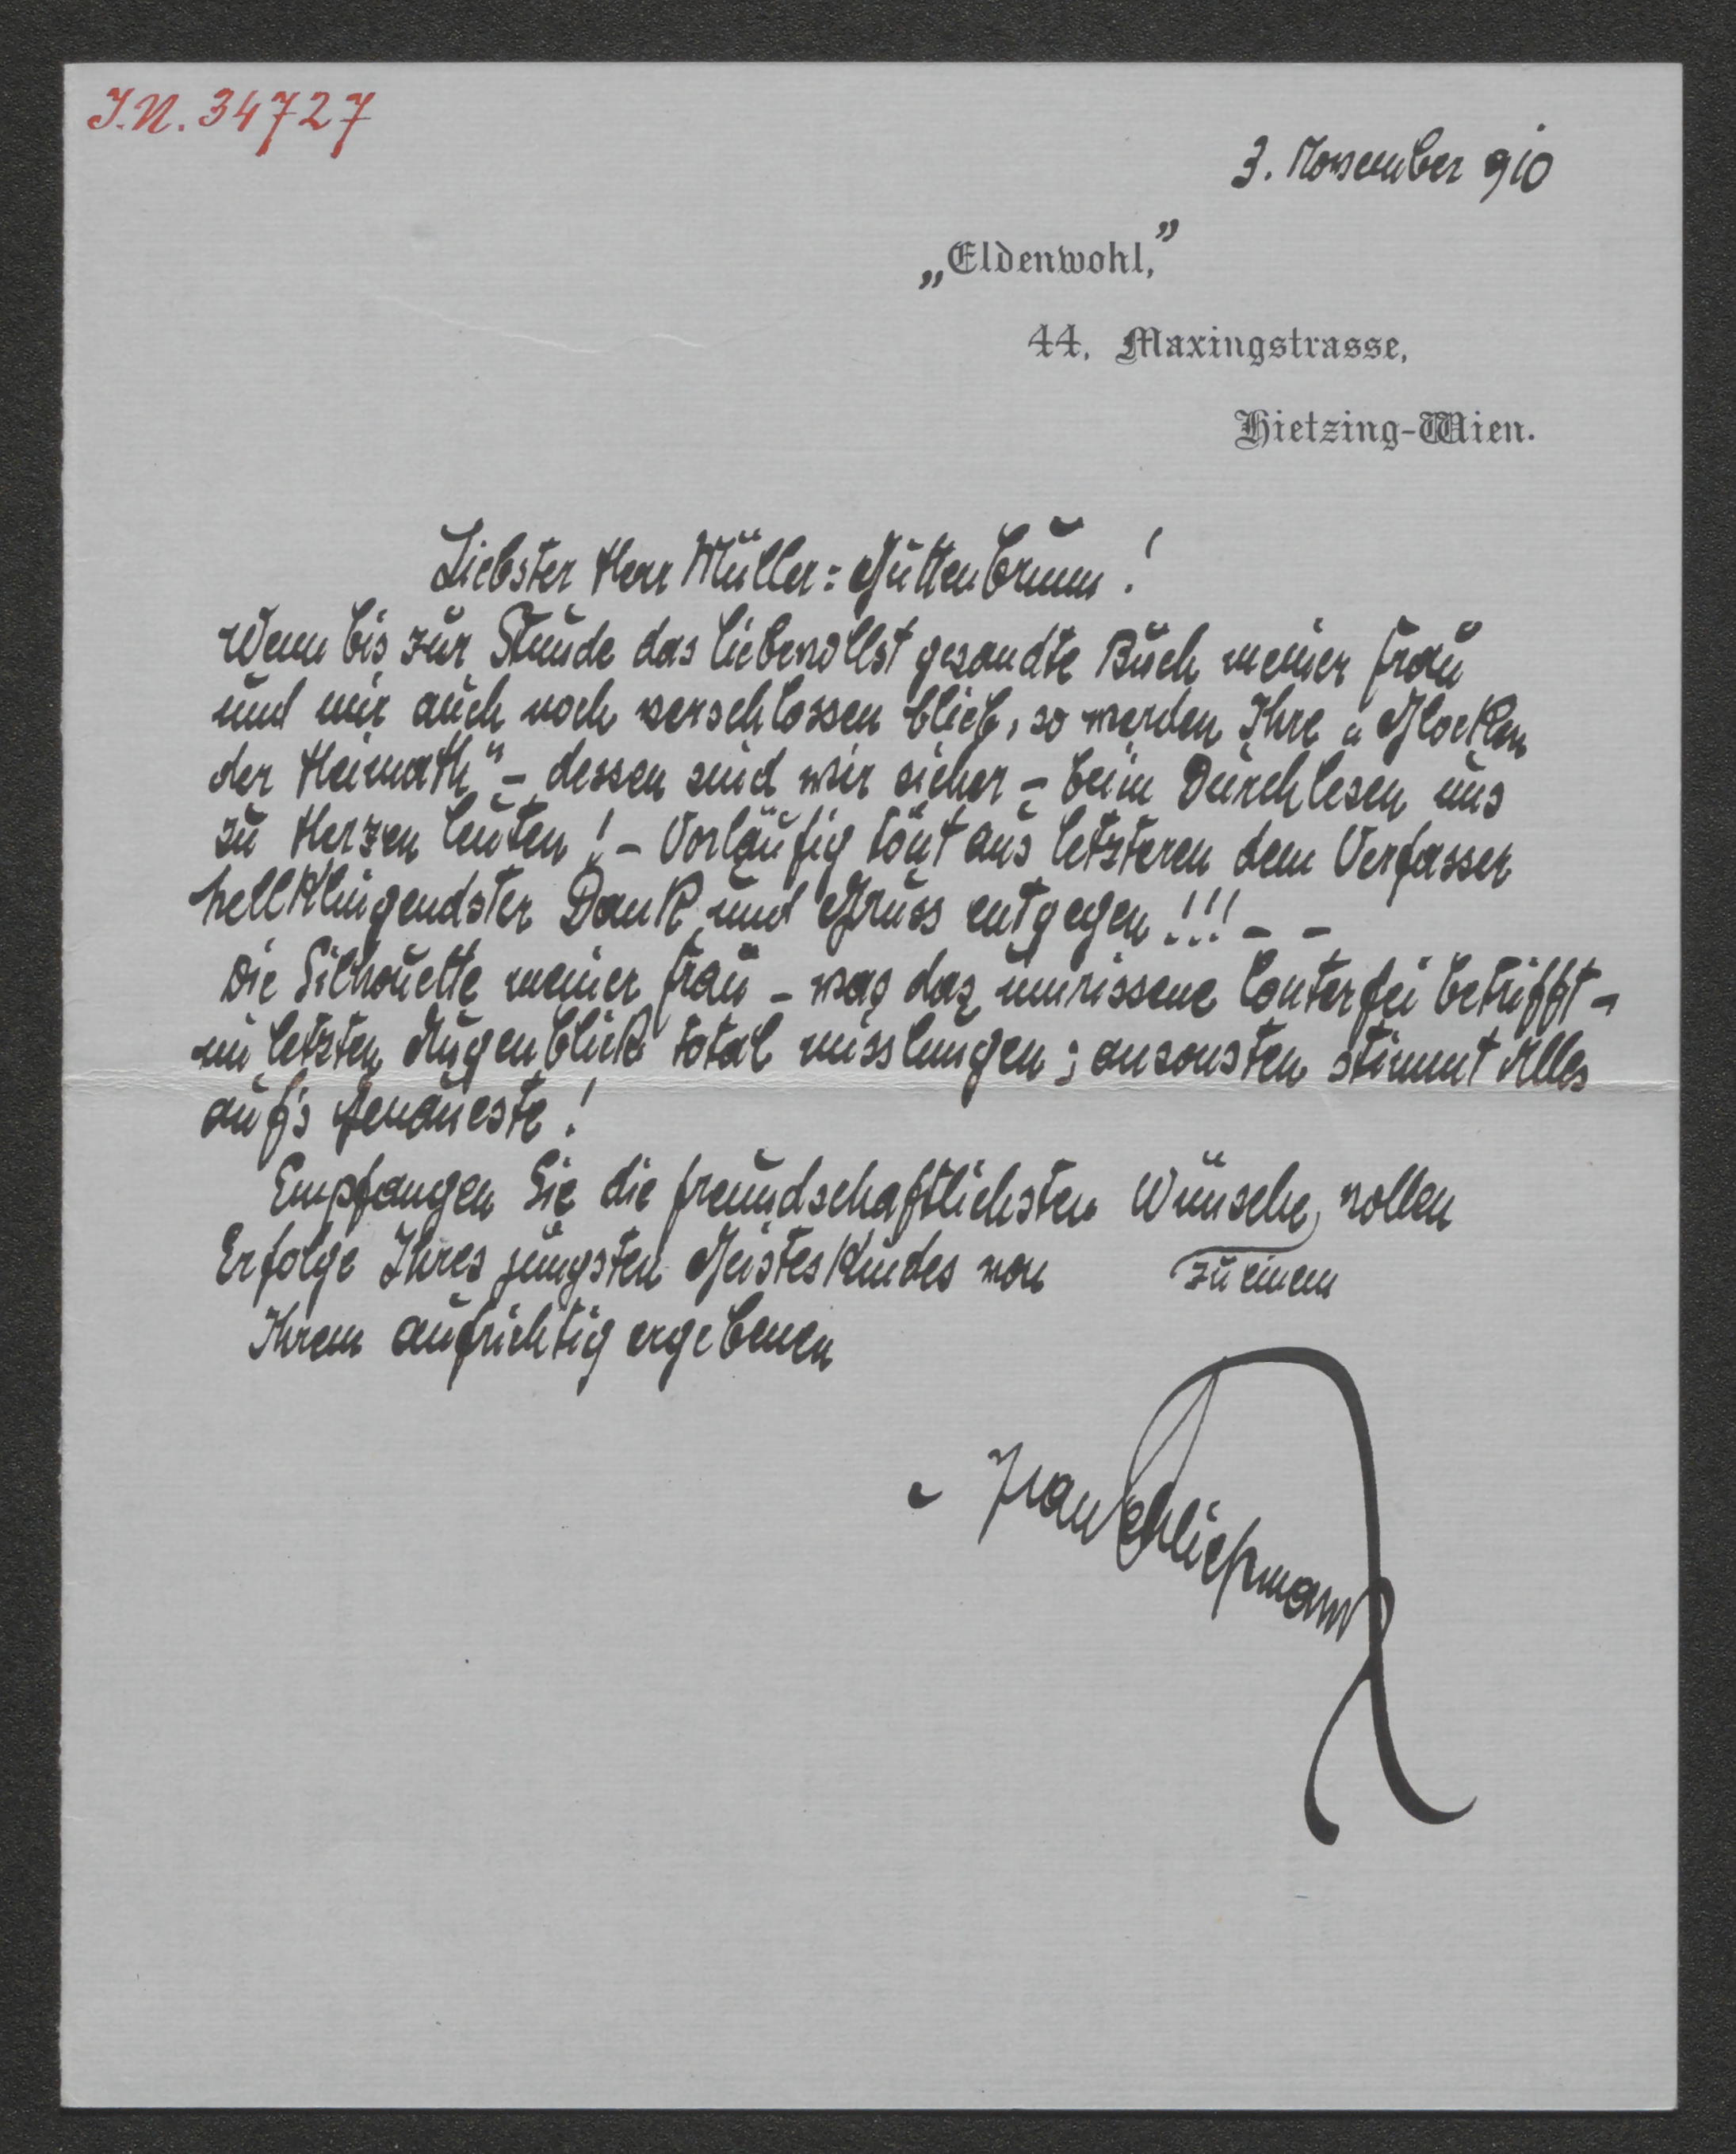 J.N. 34727
3. November 910
„Eldenwohl,”
44, Maxingstrasse,
Hietzing-Wien.
Liebster Herr Müller=Guttenbrunn!
Wenn bis zur Stunde das liebevollst gesandte Buch meiner Frau
und mir auch noch verschlossen blieb, so werden Ihre „Glocken
der Heimath" – dessen sind wir sicher – beim Durchlesen uns
zu Herzen leuten! – Vorläufig tönt aus letzteren dem Verfasser
hellklingendster Dank und Gruss entgegen!!! – –
Die Silhouette meiner Frau – was das umrissene Conterfei betrifft –
im letzten Augenblick total misslungen; ansonsten stimmt Alles
auf's Genaueste!
Empfangen Sie die freundschaftlichsten Wünsche, vollen
Erfolge Ihres jüngsten Geisteskindes von zu einem
Ihrem aufrichtig ergebenen
Hans Schließmann